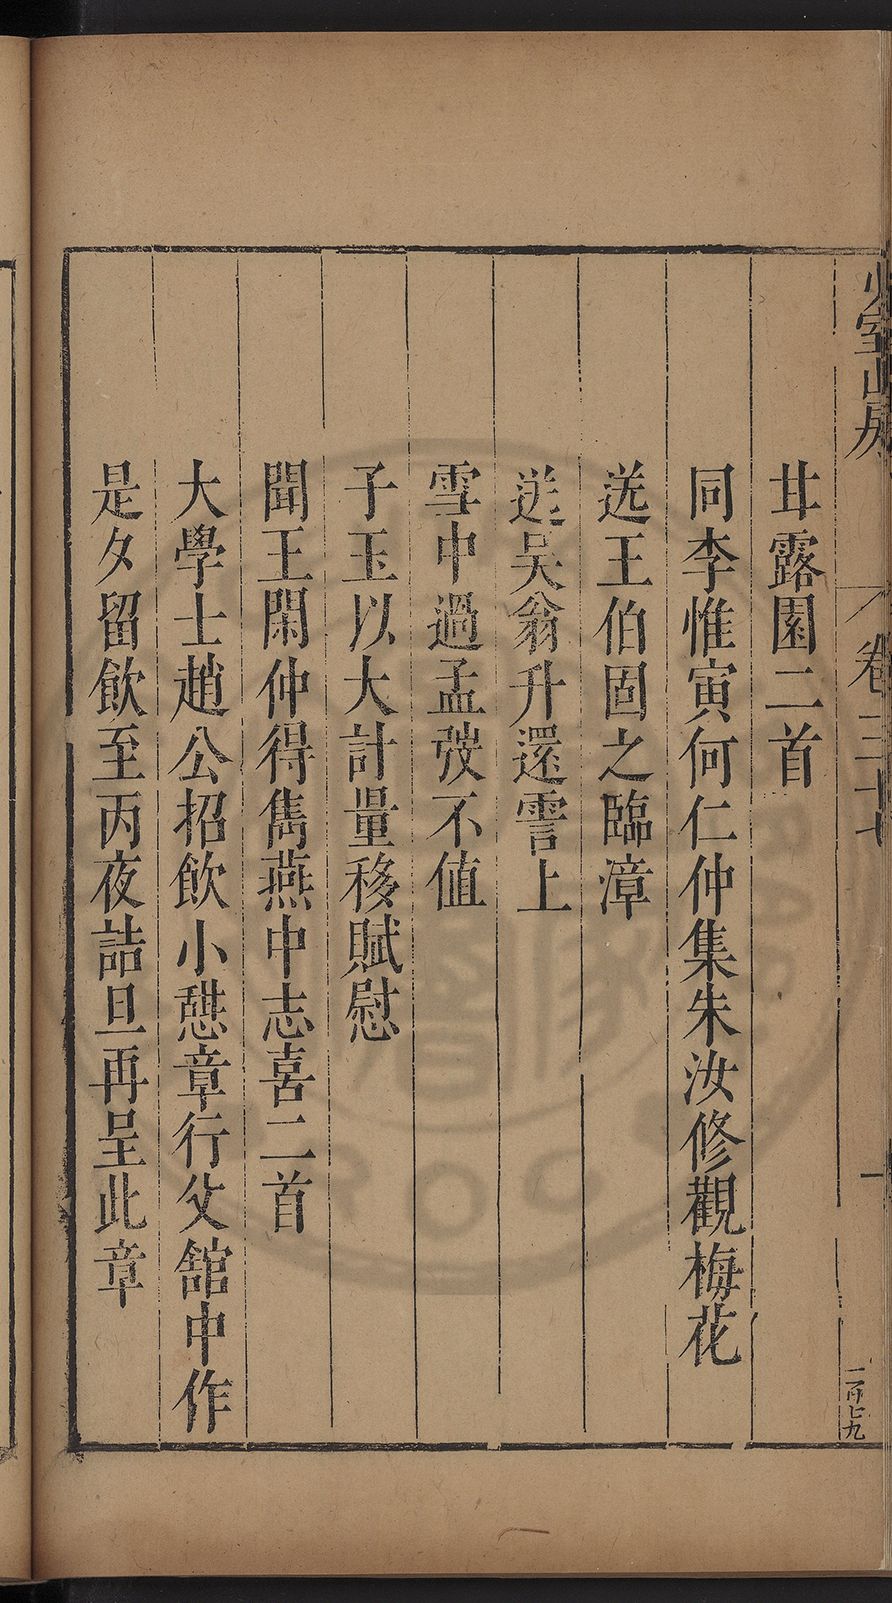 少室山房
卷三十七
一
一百七九
甘露園二首
同李惟寅何仁仲集朱汝修觀梅花
送王伯固之臨漳
送吳翁升還霅上
雪中過孟弢不值
子玉以大計量移賦慰
聞王閑仲得雋燕中志喜二首
大學士趙公招飲小憇章行父舘中作
是夕留飲至丙夜詰旦再呈此章